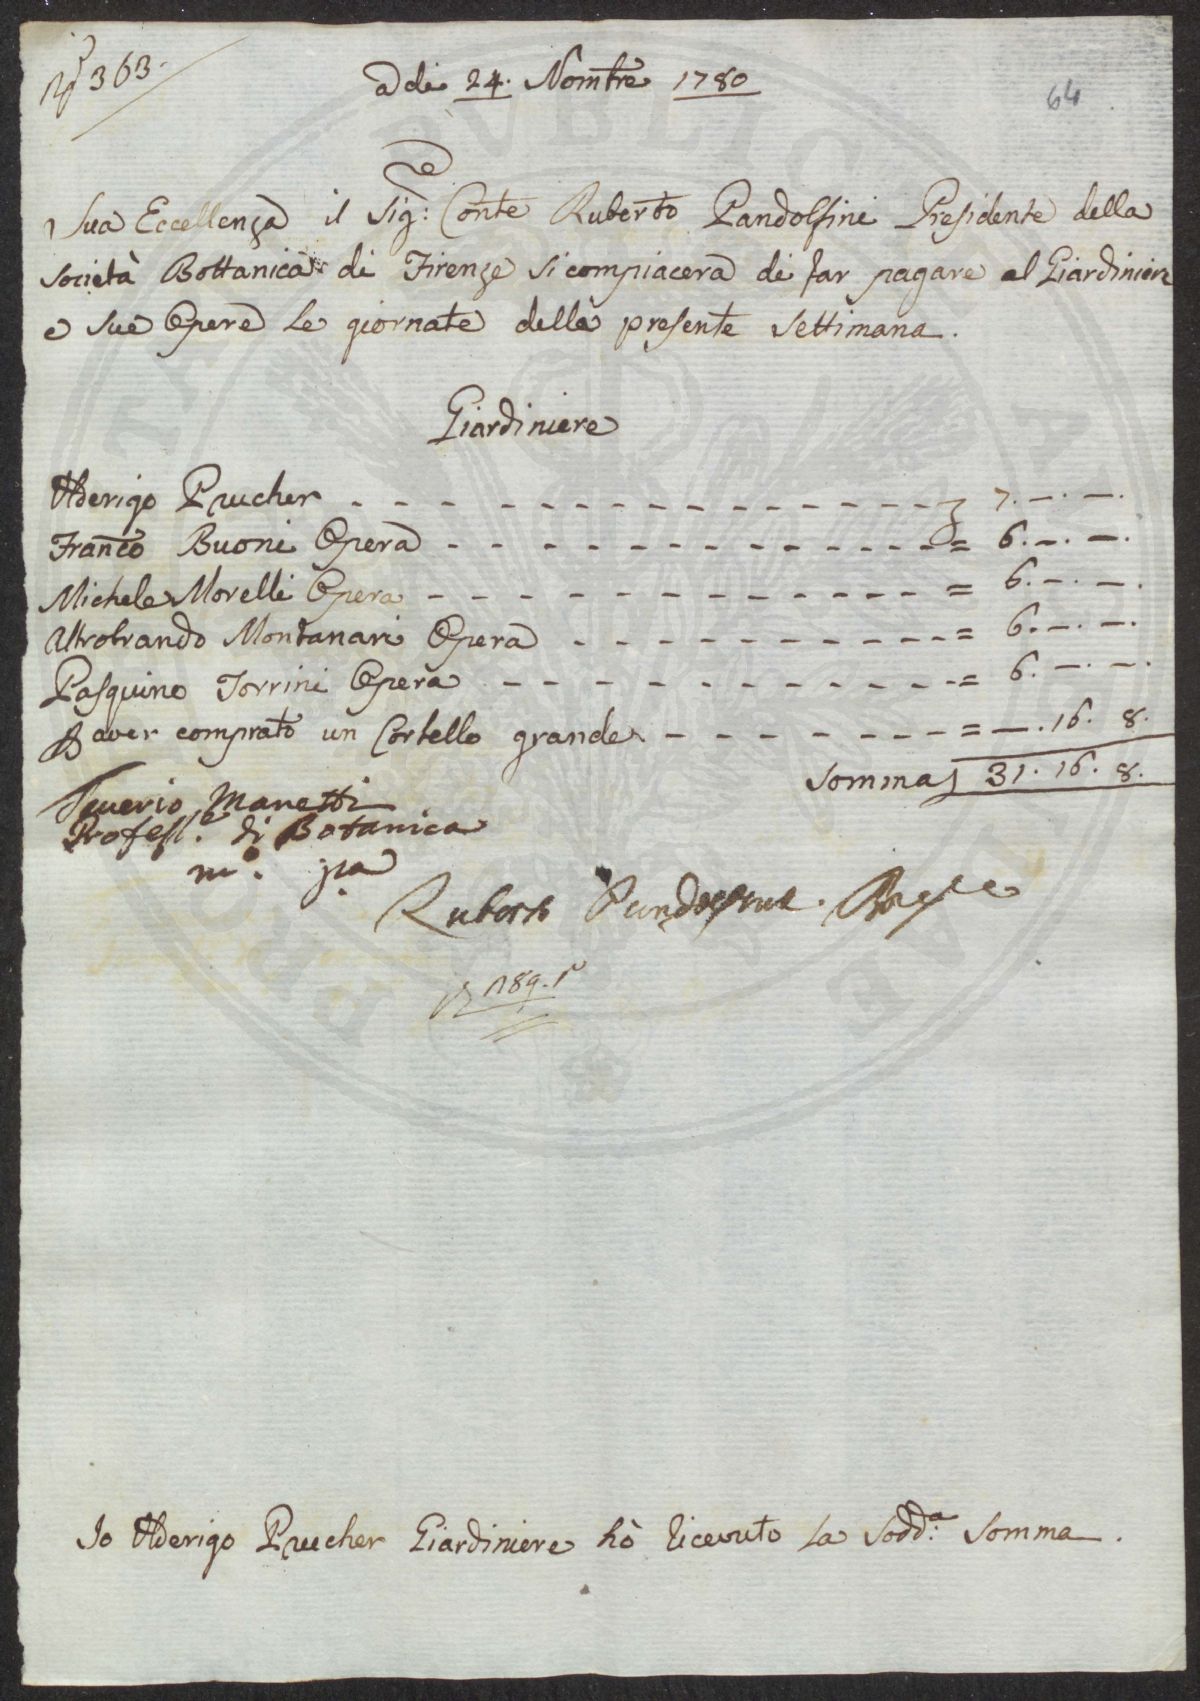 N.º 363.
Adi 24. Nombre 1780
64
Sua Eccellenza il Sig:re Conte Ruberto Pandolfini Presidente della
Società Bottanica di Firenze si compiacerà di far pagare al Giardiniere
e sue Opere le giornate della presente Settimana.
Giardiniere
Uderigo Prucher - - - - - - - - - - - - - - - - 7. —. —.
Franco Buoni Opera - - - - - - - - - - - - - - = 6. —. —.
Michele Morelli Opera - - - - - - - - - - - - - = 6. —. —.
Altobrando Montanari Opera - - - - - - - - - = 6. —. —.
Pasquino Torrini Opera - - - - - - - - - - - - = 6. —. —.
P aver comprato un Cortello grande - - - - - - - = —. 16. 8.
Somma 31. 16. 8.
Saverio Manetti
Profess.e di Botanica
m.o pa
Ruberto Pandolfini
189.
Io Uderigo Prucher Giardiniere hò ricevuto la Sodd:a Somma.